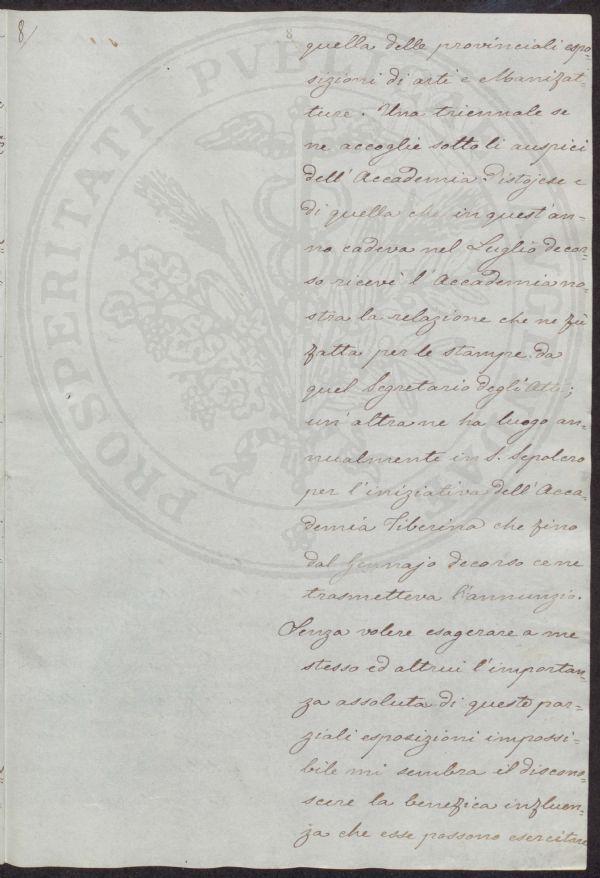 8/
8
quella delle provinciali espo-
sizioni di arti e Manifat-
ture. Una triennale se
ne accoglie sotto li auspici
dell'Accademia Pistojese e
di quella che in quest'an-
no cadeva nel Luglio decor-
so ricevè l'Accademia no-
stra la relazione che ne fù
fatta per le stampe da
quel Segretario degli Atti;
un'altra ne ha luogo an-
nualmente in S. Sepolcro
per l'iniziativa dell'Acca-
demia Tiberina che fino
dal Gennajo decorso ce ne
trasmetteva l'annunzio.
Senza volere esagerare a me
stesso ed altrui l'importan-
za assoluta di queste par-
ziali esposizioni impossi-
bile mi sembra il discono-
scere la benefica influen-
za che esse possono esercitare
PROSPERITATI PVBLICAE